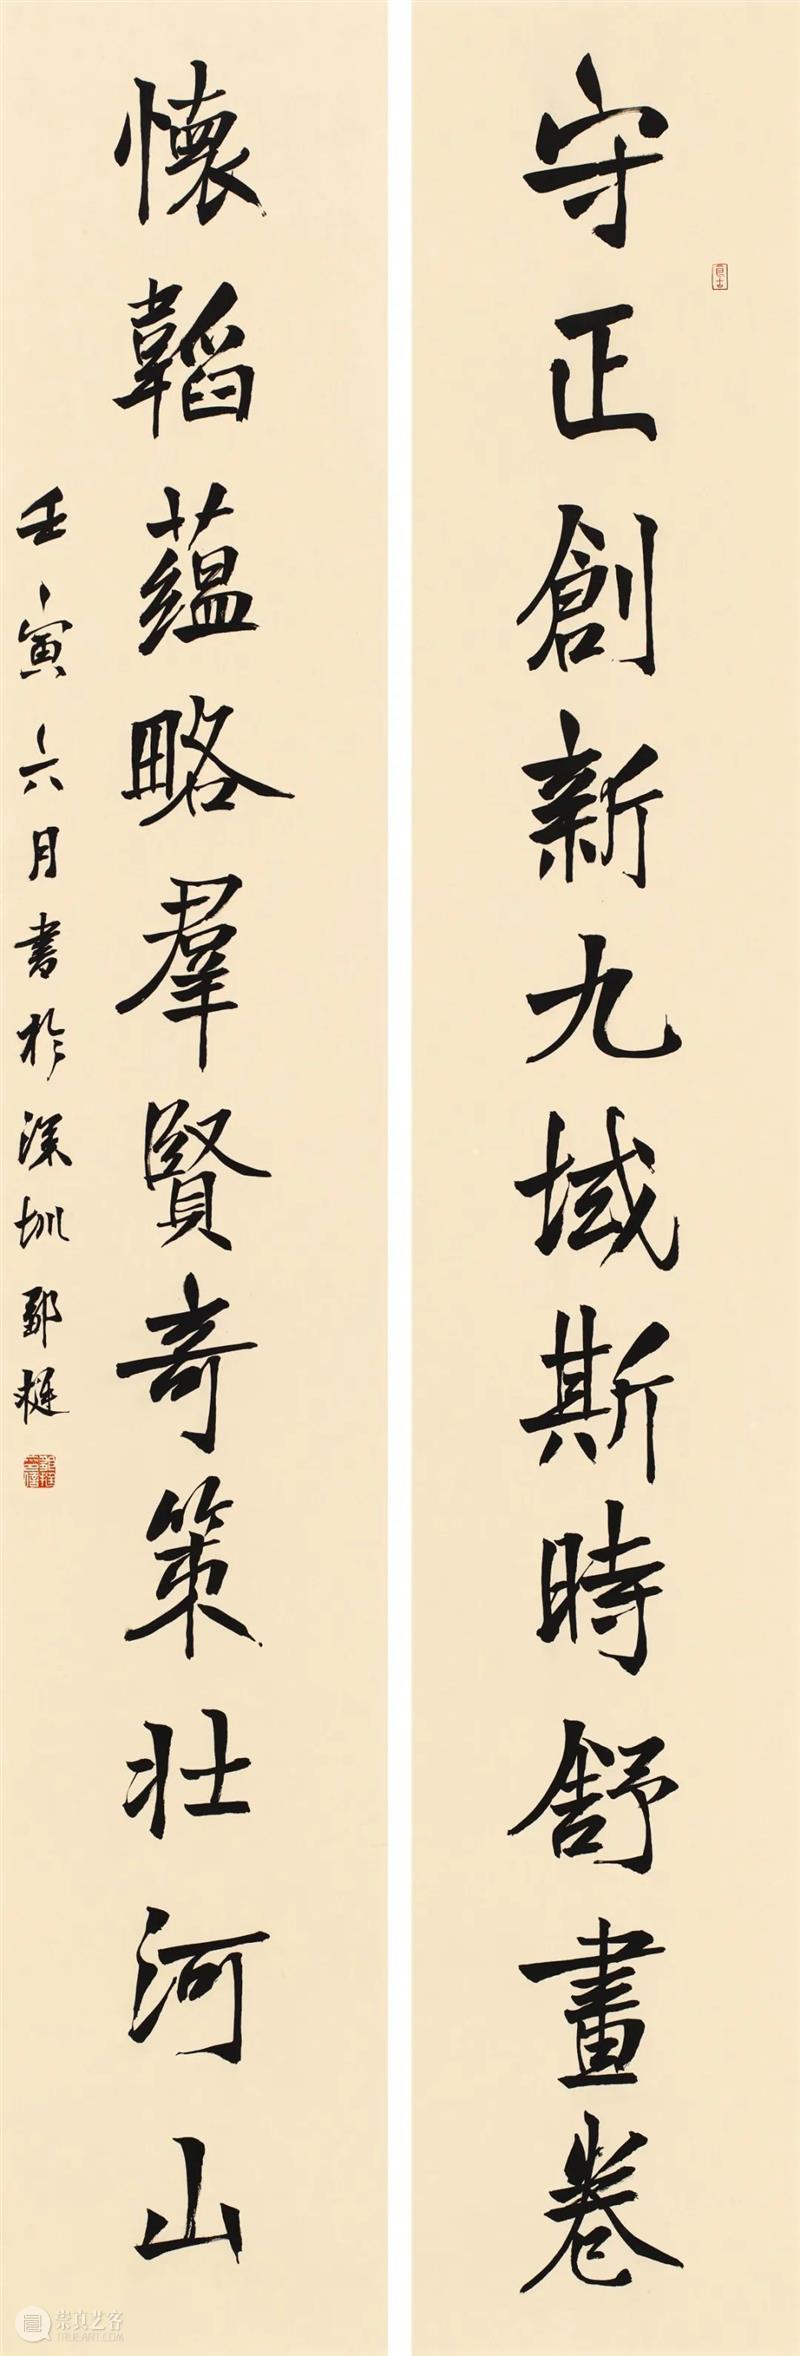 守正創新九域斯時舒畫卷
懷韜蘊略羣賢奇策壯河山
壬寅六月書於深圳鄞梃
崇真艺客
TRUEART.COM